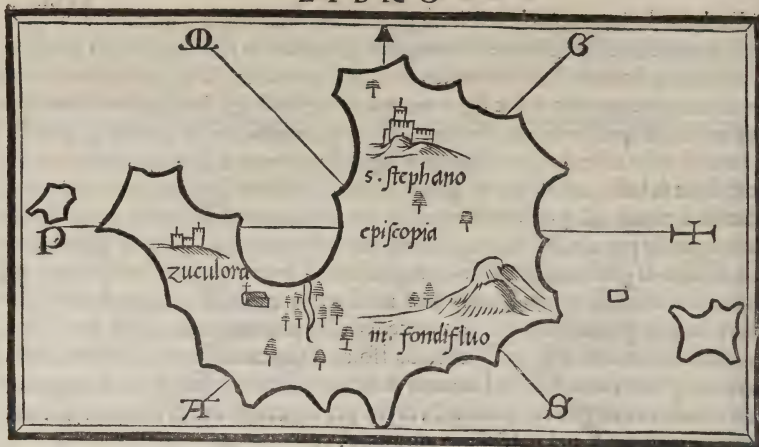 LIBRO
M
G
s. ſtephano
epiſcopia
P
zuculora
m. fondifluo
A
S